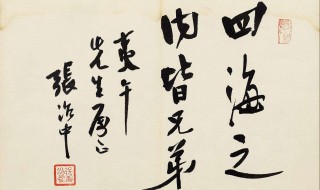 四海之
内皆兄弟
先生属正
張治中